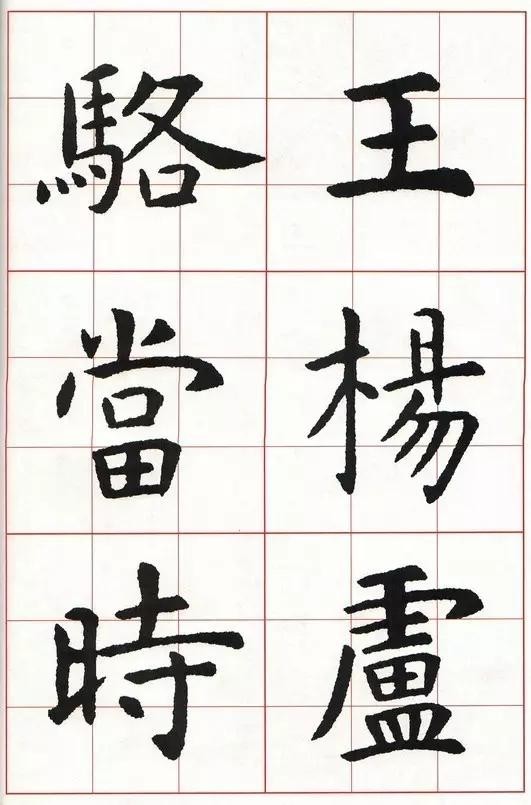 王楊盧
駱當時